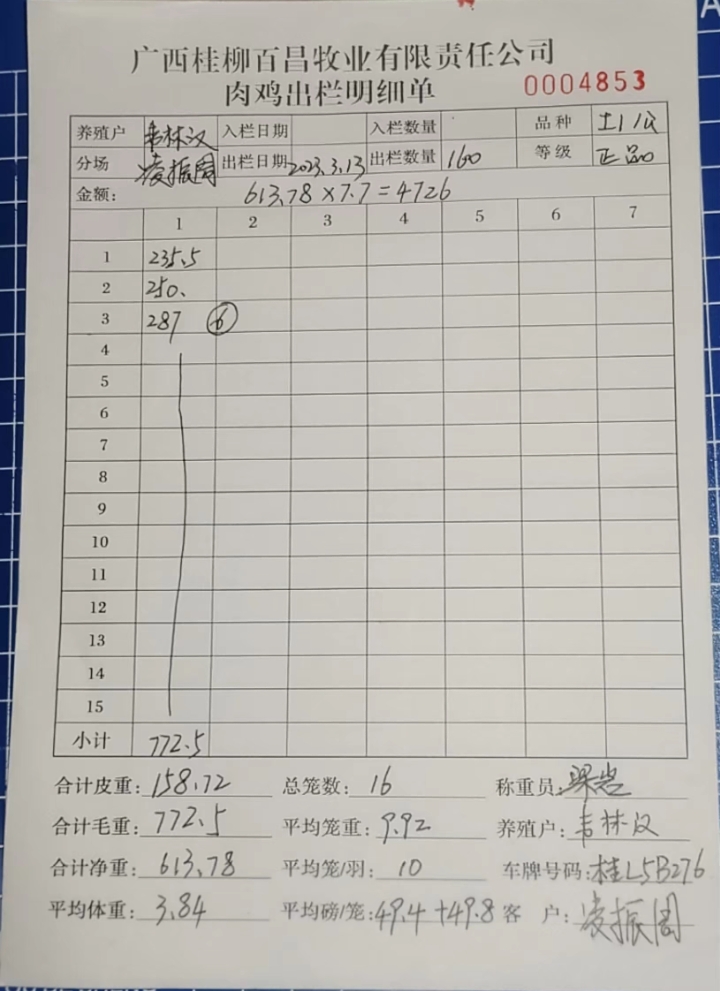 广西桂柳百昌牧业有限责任公司
肉鸡出栏明细单 0004853
养殖户 韦林汉 入栏日期 入栏数量 品种 土1公
分场 凌振周 出栏日期 2023.3.13 出栏数量 160 等级 正品
金额: 613.78×7.7=4726
1 2 3 4 5 6 7
1 235.5
2 250.
3 287 ⑥
4
5
6
7
8
9
10
11
12
13
14
15
小计 772.5
合计皮重: 158.72 总笼数: 16 称重员:
合计毛重: 772.5 平均笼重: 9.92 养殖户: 韦林汉
合计净重: 613.78 平均笼/羽: 10 车牌号码: 桂L5B276
平均体重: 3.84 平均磅/笼: 49.4+49.8 客户: 凌振周